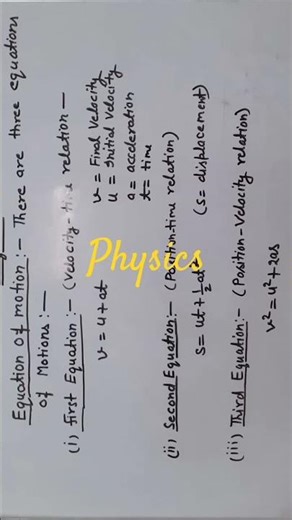 Equation of motion :- There are three equations
of Motions :-
(i) First Equation :- (Velocity-time relation -
v = u + at
v = Final Velocity
u = Initial Velocity
a = acceleration
t = time
(ii) Second Equation:- (Position-time relation)
s = ut + 1/2 at² (s = displacement)
(iii) Third Equation:- (Position-Velocity relation)
v² = u² + 2as
Physics